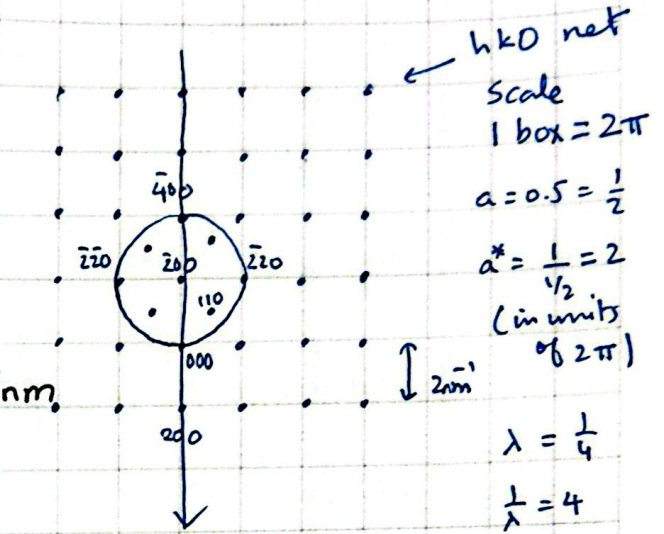 hk0 net
Scale
1 box = 2π
a = 0.5 = 1/2
a* = 1/(1/2) = 2
(in units
of 2π)
λ = 1/4
1/λ = 4
4̄00
2̄2̄0
2̄00
2̄20
110
000
2nm⁻¹
nm
200